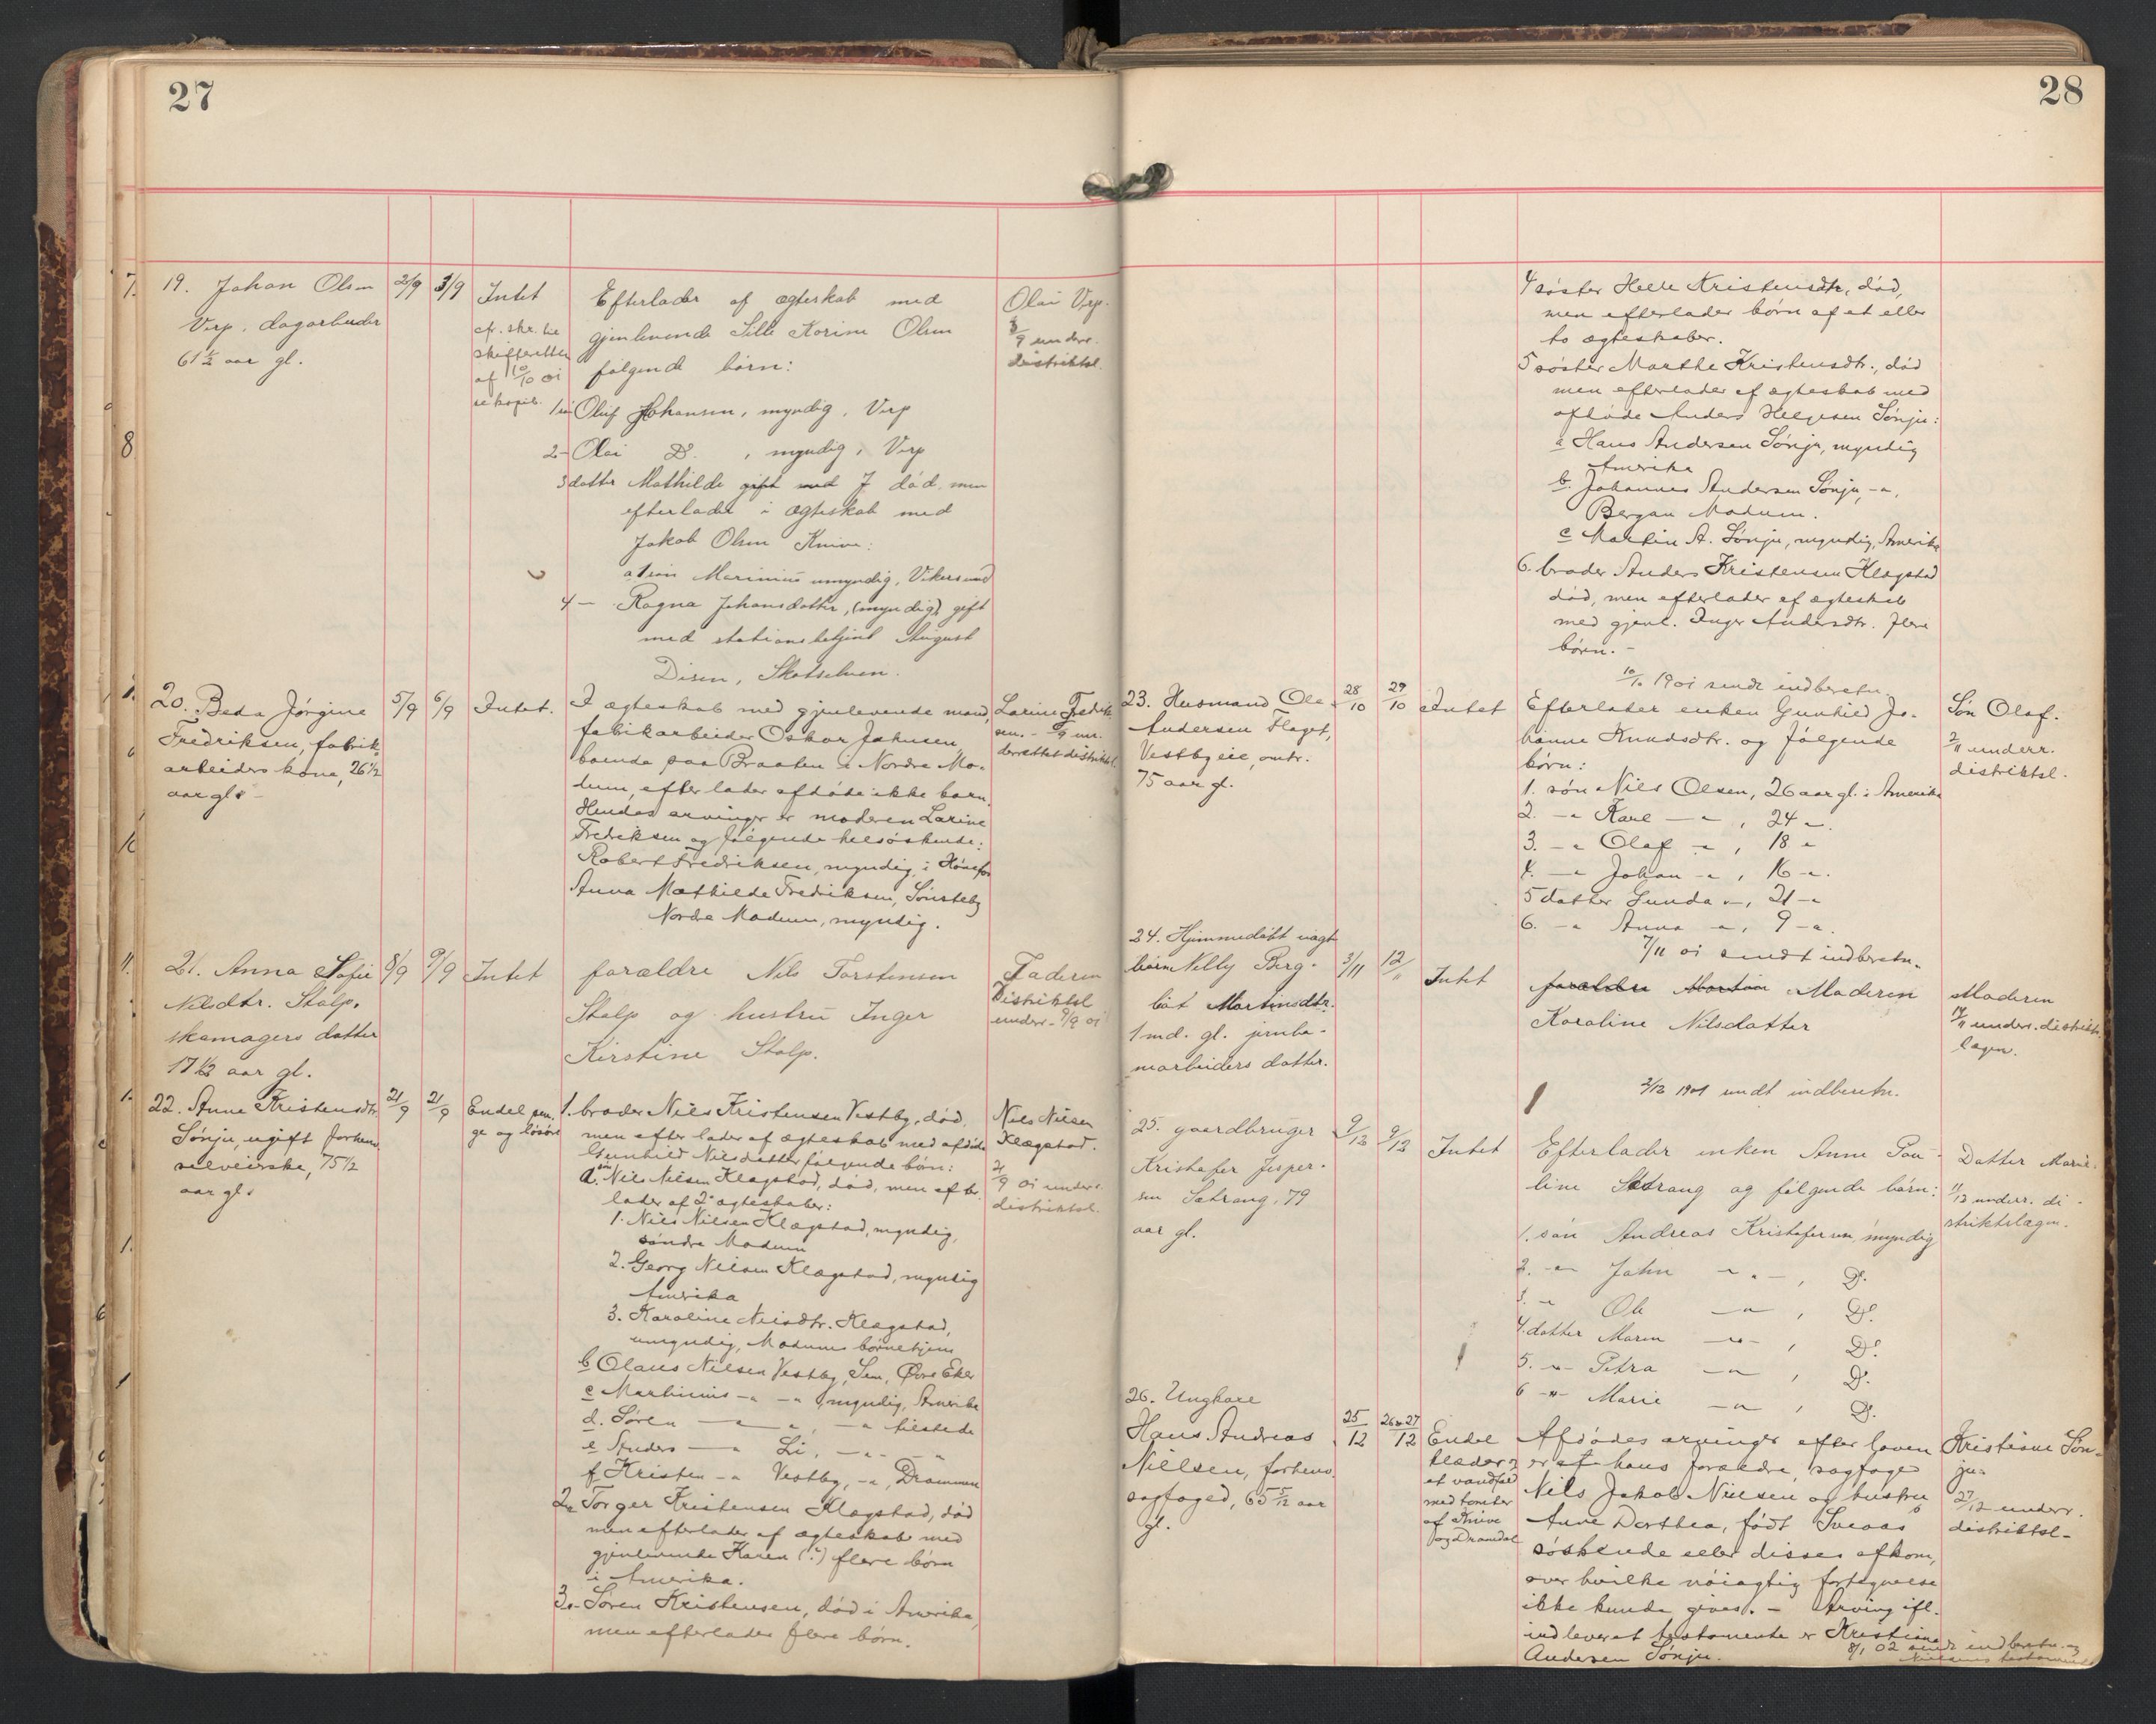 27
19. Johan Olsen
Verp, dagarbeider
61 1/2 aar gl.
2/9
3/9
Intet
cf. skr. til
skifteretten
af 10/10 01
se kopib.
Efterlader af ægteskab med
gjenlevende Sille Karine Olsen
følgende børn:
1 søn Oluf Johansen, myndig, Verp
2 - Olai Do. , myndig, Verp
3 datter Mathilde gift med J død men
efterlader i ægteskab med
Jakob Olsen Knive:
a 1 søn Marinius umyndig, Vikersund
4 - Ragna Johansdatter, (myndig) gift
med stationsbetjent August
Disen, Skotselven.
Olai Verp.
3/9 underr.
distriktsl.
20. Beda Jørgine
Fredriksen, fabrik-
arbeiders kone, 26 1/2
aar gl. -
5/9
6/9
Intet.
I ægteskab med gjenlevende mand,
fabrikarbeider Oskar Johnsen,
boende paa Braaten i Nordre Mo-
dum, efterlader afdøde ikke barn.
Hendes arvinger er moderen Larine
Fredriksen og følgende helsøskende:
Robert Fredriksen, myndig, i Hønefos
Anna Mathilde Fredriksen, Sønsteby
Nordre Modum, myndig.
Larine Fredrik-
sen. - 6/9 un-
derrettet distriktsl.
21. Anna Sofie
Nilsdtr. Stalp,
skomagers datter
17 1/2 aar gl.
8/9
9/9
Intet
forældre Nils Torstensen
Stalp og hustru Inger
Kirstine Stalp.
Faderen
Distriktsl
underr. 9/9 01
22. Anne Kristensdtr.
Sønju, ugift forhenv.
selveierske, 75 1/2
aar gl.
21/9
21/9
Endel pen-
ge og løsøre
1. broder Niels Kristensen Vestby, død,
men efterlader af ægteskab med afdøde
Gunhild Nilsdatter følgende børn:
a. søn Nils Nilsen Klagstad, død, men efter-
lader af 2 ægteskaber:
1. Nils Nilsen Klagstad, myndig,
søndre Modum
2. Georg Nilsen Klagstad, myndig
Amerika
3. Karoline Nilsdtr. Klagstad,
umyndig, Modums børnehjem
b Olaus Nilsen Vestby, Sem, Øvre Eker
c Marthinius -"- -"- , myndig, Amerika
d. Søren -"- -"- -"- tilstede
e Anders -"- Li, -"- -"-
f. Kristen -"- Vestby, -"-, Drammen
2. Torger Kristensen Klagstad, død
men efterlader af ægteskab med
gjenlevende Karen (?) flere børn
i Amerika.
3. Søren Kristensen, død i Amerika,
men efterlader flere børn.
Nils Nilsen
Klagstad.
21/9 01 underr.
distriktsl.
28
4 søster Helle Kristensdtr., død,
men efterlader børn af et eller
to ægteskaber.
5 søster Marthe Kristensdtr., død
men efterlader af ægteskab med
afdøde Anders Helgesen Sønju:
a Hans Andersen Sønju, myndig
Amerika
b. Johannes Andersen Sønju, -"-,
Bergan Modum.
c Martin A. Sønju, myndig, Amerika
6. broder Anders Kristensen Klagstad
død, men efterlader af ægteskab
med gjenl. Inger Andersdtr. flere
børn. -
10/10 1901 sendt indberetn.
23. Husmand Ole
Andersen Flaget,
Vestby eie, omtr.
75 aar gl.
28/10
29/10
Intet
Efterlader enken Gunhild Jo-
hanne Knudsdtr. og følgende
børn:
1. søn Nils Olsen, 26 aar gl. i Amerika
2. -"- Karl -"- , 24 -"-.
3. -"- Olaf -"- , 18 -"-
4. -"- Johan -"- , 16 -"-.
5 datter Gunda -"-, 21 -"-
6. -"- Anna -"-, 9 -"-.
7/11 01 sendt indberetn.
Søn Olaf.
2/11 underr.
distriktsl.
24. Hjemmedøbt uægte
barn Nelly Berg-
liot Martinsdtr.
1 md. gl. jernba-
nearbeiders datter.
3/11
12/11
Intet
forældre Martin Moderen
Karoline Nilsdatter
2/12 1901 sendt indberetn.
Moderen
12/11 underr. distrikts-
lægen.
25. gaardbruger
Kristofer Jesper-
sen Sætrang, 79
aar gl.
9/12
9/12
Intet
Efterlader enken Anne Pau-
line Sætrang og følgende børn:
1. søn Andreas Kristofersen, myndig
2. -"- John -"- , Do.
3. -"- Ole -"- , Do.
4. datter Maren -"- , Do.
5. -"- Petra -"- , Do.
6 -"- Marie -"- , Do.
Datter Marie.
11/12 underr. di-
striktslægen.
26. Ungkarl
Hans Andreas
Nielsen, forhenv.
sagfoged, 65 5/12 aar
gl.
25/12
26 & 27/12
Endel
klæder &
et vandfald
med tomter
af Knive
og Dramdal
Afdødes arvinger efter loven
er af hans forældre, sagfoged
Nils Jakob Nielsen og hustru
Anne Dorthea, født Sveaas
søskende eller disses afkom,
over hvilke nøiagtig fortegnelse
ikke kunde gives. - Arving ifl.
indleveret testamente er Kristiane
Andersen Sønju.
8/1 02 sendt indberetn. og
Nielsens testamente
Kristiane Søn-
ju.
27/12 underr.
distriktsl.